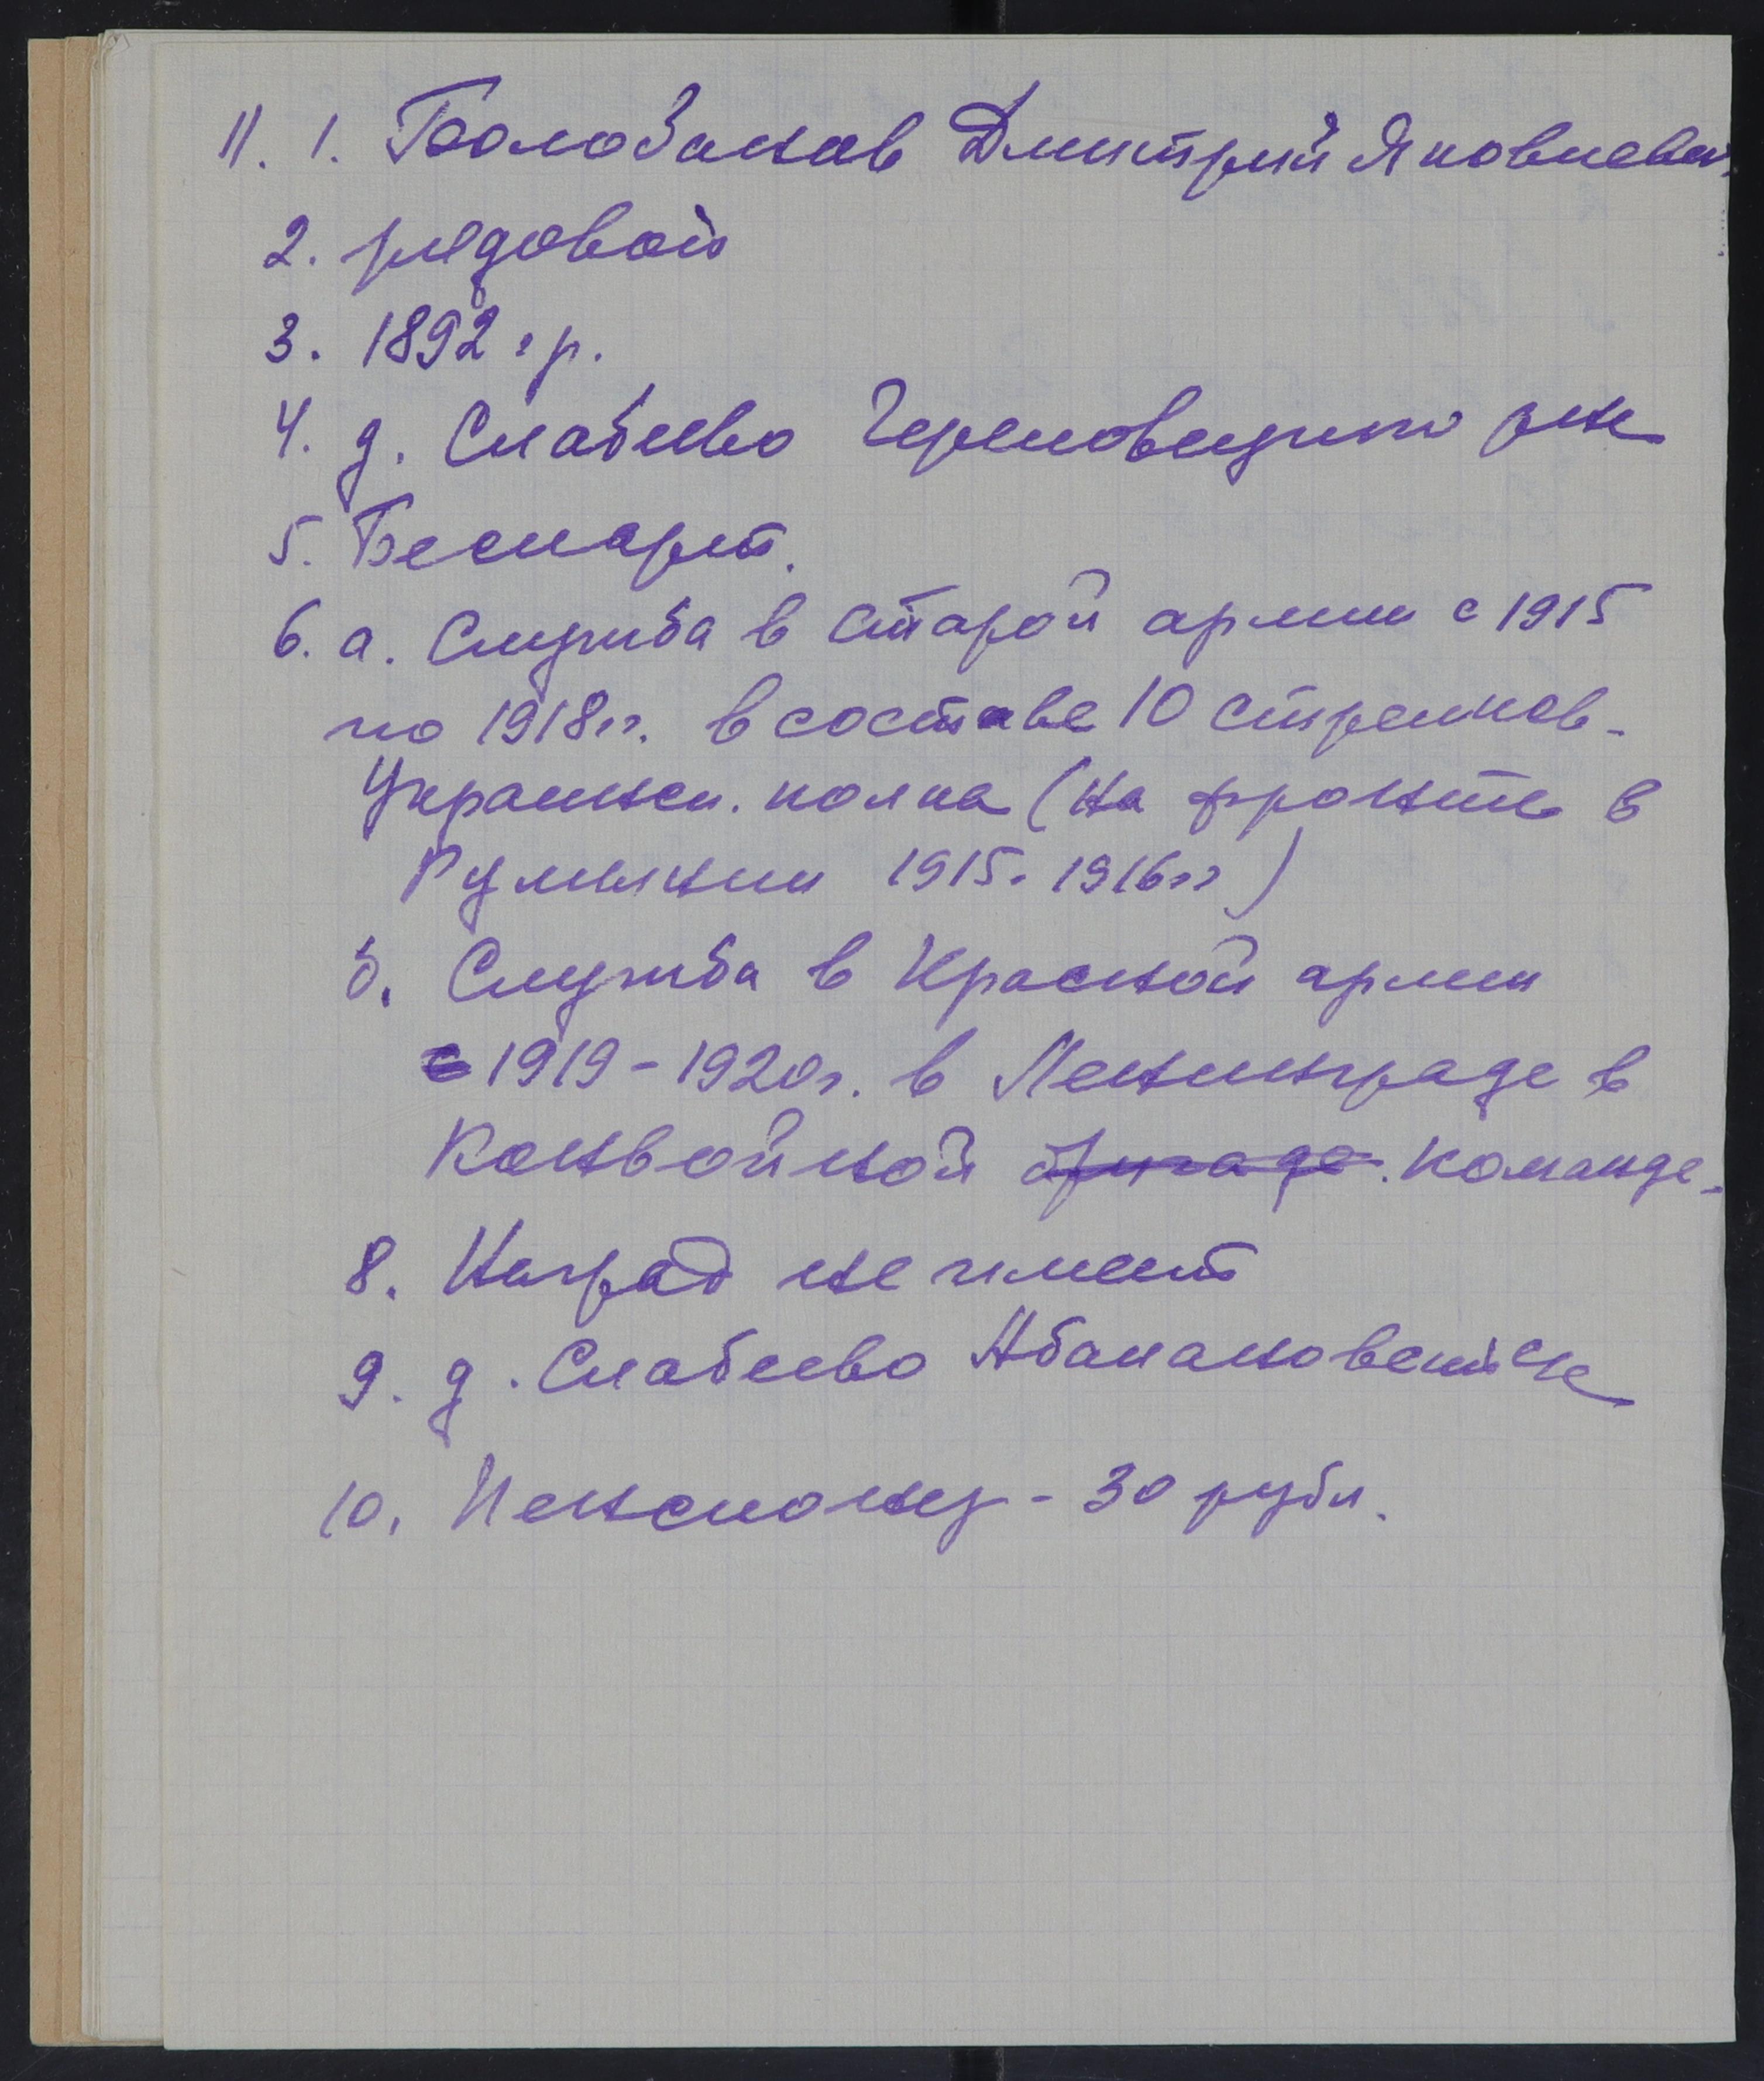 11. 1. Болобанов Дмитрий Яковлевич
2. рядовой
3. 1892 г р.
4. д. Слабеево Череповецкого р-на
5. Беспарт.
6. а. Служба в старой армии с 1915
по 1918 гг. в составе 10 стрелков.
Украинск. полка (на фронте в
Румынии 1915. 1916 гг)
б. Служба в Красной армии
с 1919-1920 г. в Ленинграде в
Конвойной бригаде. команде.
8. Наград не имеет
9. д. Слабеево Абакановский с/с
10. Пенсионер - 30 рубл.